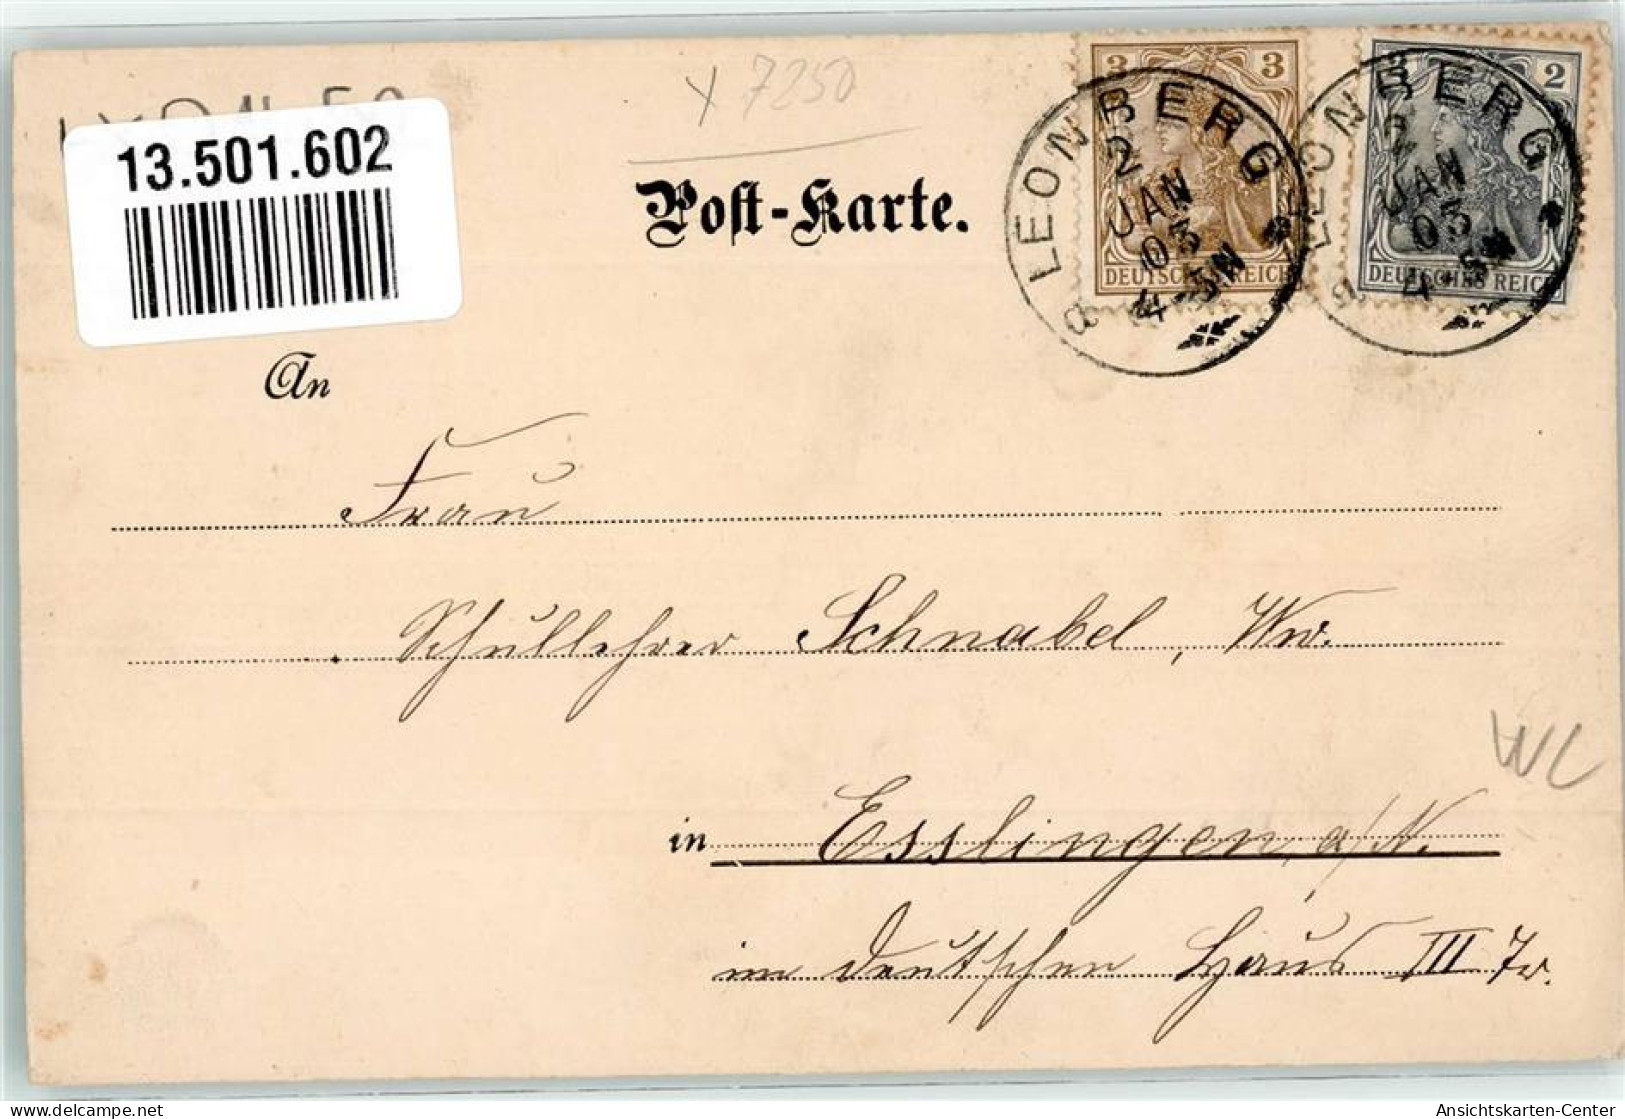 7250
13.501.602
Post-Karte.
3
DEUTSCHES REICH
LEONBERG
2 JAN 03
4-5N
a
2
DEUTSCHES REICH
LEONBERG
2 JAN 03
4-5N
a
An
Frau
Schullehrer Schnabel, Ww.
in Esslingen a/N.
im deutschen Haus III Tr.
delcampe.net
Ansichtskarten-Center